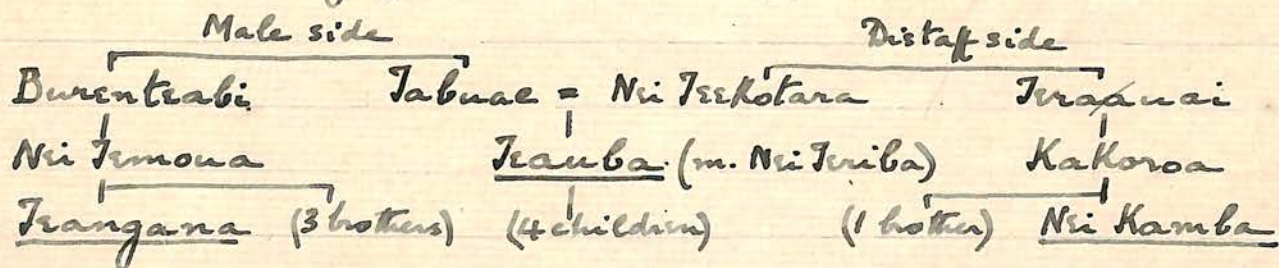 Male side Distaff side
Burenteabi Tabuae = Nei Teekotara Teraauai
Nei Temoua Teauba (m. Nei Teriba) Kakoroa
Teangana (3 brothers) (4 children) (1 brother) Nei Kamba